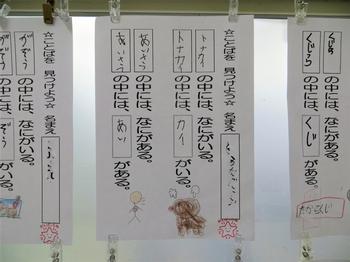 くじら の中には、なにがある。
くじら の中には、 くじ がある。
たからくじ
☆ことばを 見つけよう☆ 名まえ
トナカイ の中には、なにがいる。
トナカイ の中には、 カイ がいる。
あいさつ の中には、なにがある。
あいさつ の中には、 あい がある。
☆ことばを 見つけよう☆ 名まえ
がぞう の中には、なにがいる。
がぞう の中には、 ぞう がいる。